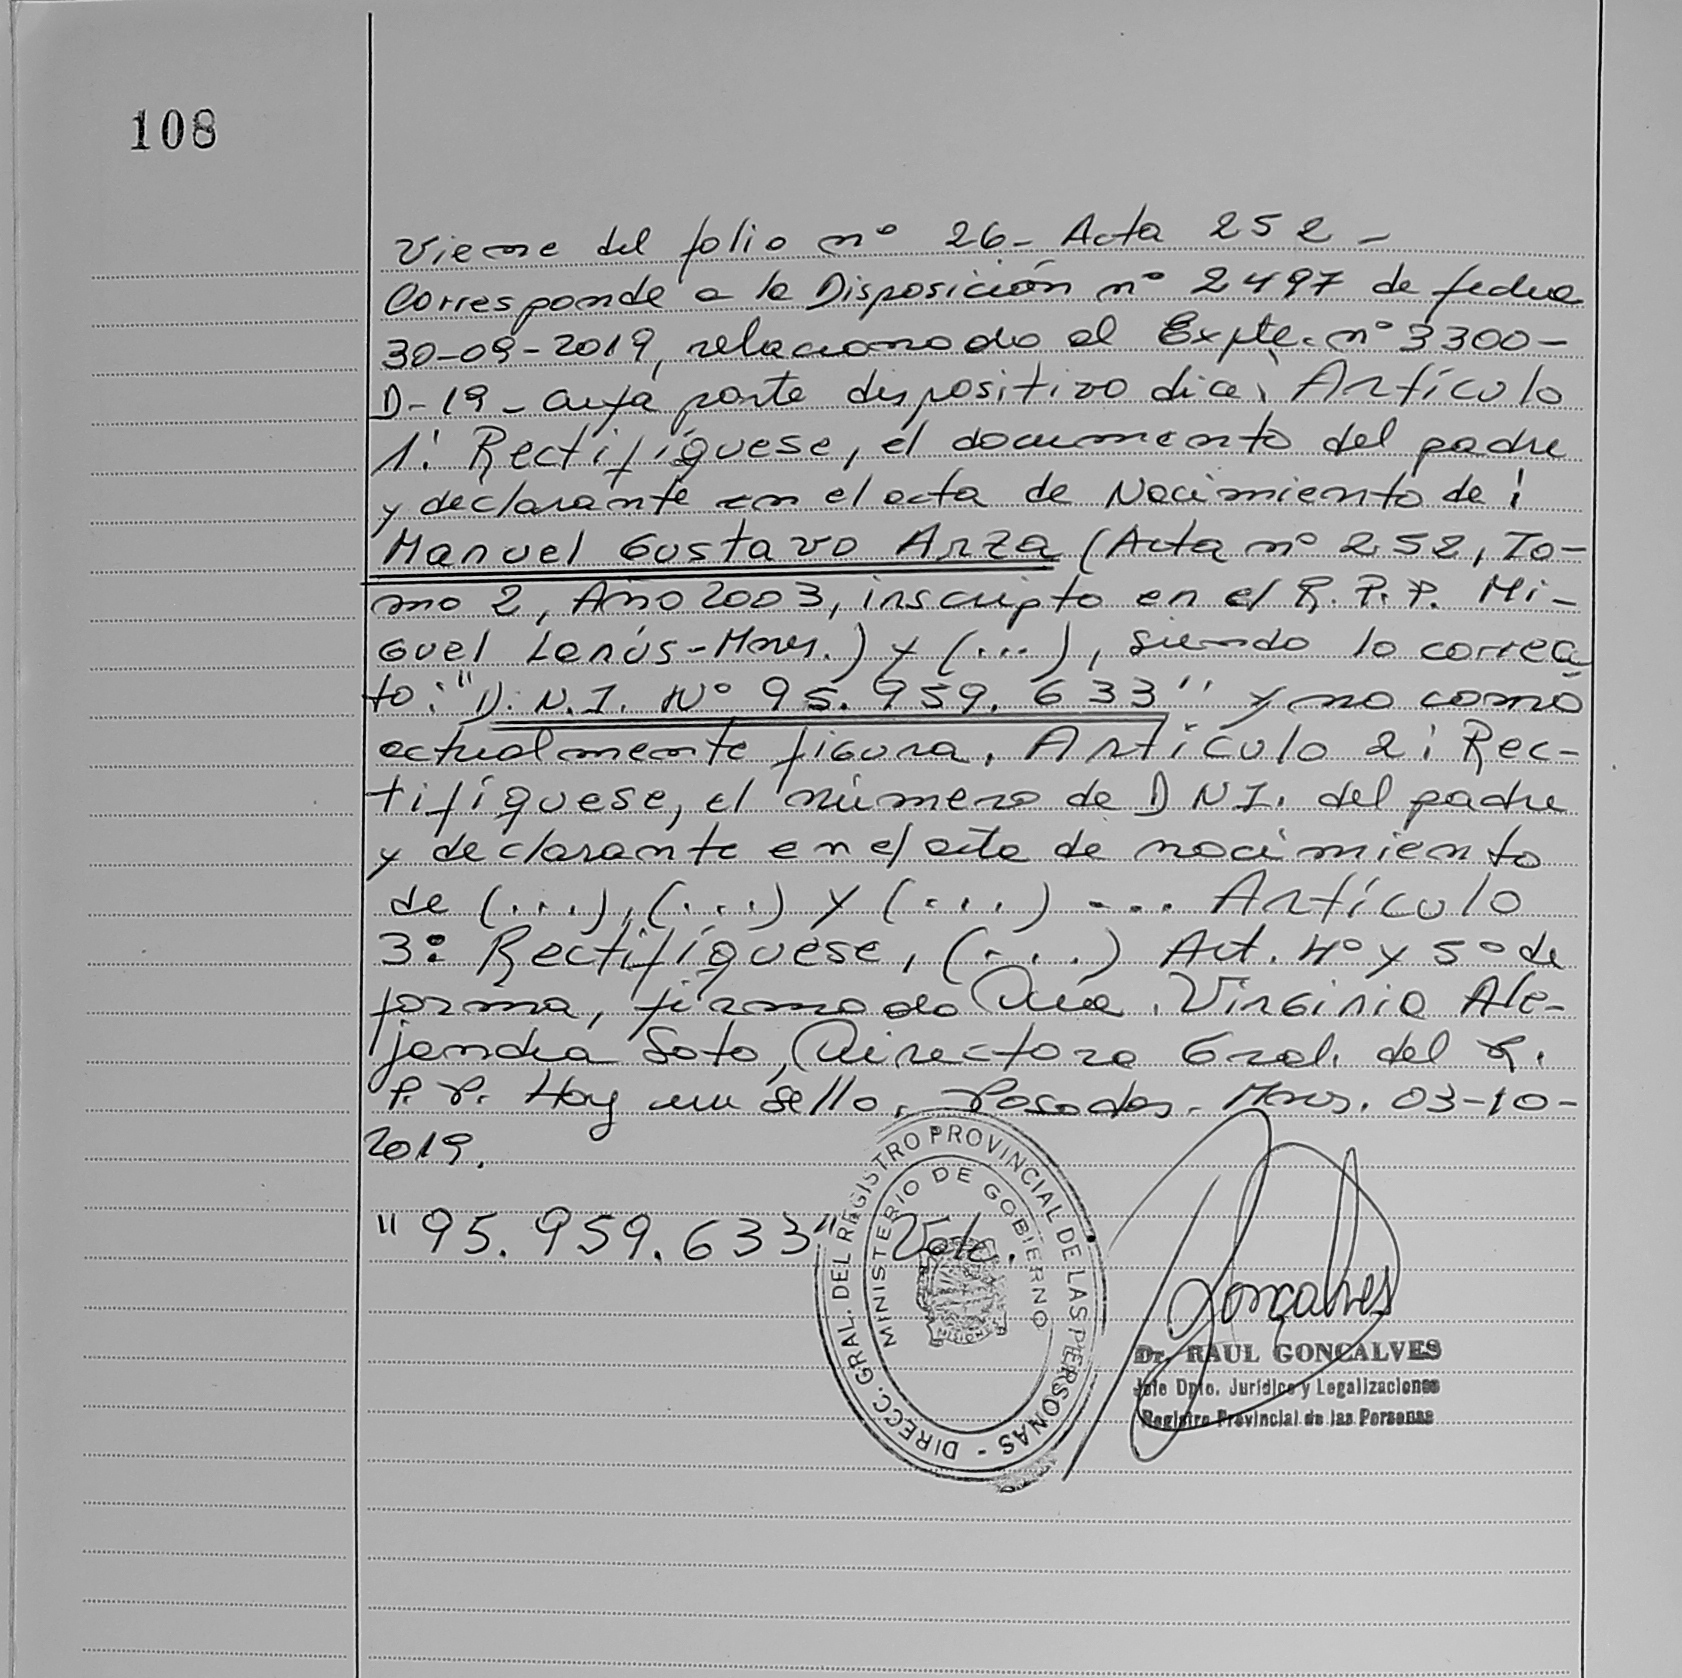 108
Viene del folio nº 26- Acta 252-
Corresponde a la Disposición nº 2497 de fecha
30-09-2019, relacionado al Expte. nº 3300-
D-19- cuya parte dispositivo dice: Artículo
1: Rectifíquese, el documento del padre
y declarante en el acta de Nacimiento de:
Manuel Gustavo Arza (Acta nº 252, To-
mo 2, Año 2003, inscripto en el R.P.P. Mi-
guel Lanús-Mnes.) y (...), siendo lo correc
to: "D.N.I. Nº 95.959.633" y no como
actualmente figura. Artículo 2: Rec-
tifíquese, el número de DNI. del padre
y declarante en el acta de nacimiento
de (...), (...) y (...) --.. Artículo
3: Rectifíquese, (...) Art. 4º y 5º de
forma, firmado Dra. Virginia Ale-
jandra Soto, Directora Gral. del R.
P.P. Hay un sello. Posadas. Mnes. 03-10-
2019.
"95.959.633" Vale.
DIRECC. GRAL. DEL REGISTRO PROVINCIAL DE LAS PERSONAS -
MINISTERIO DE GOBIERNO
MISIONES
Gonçalves
Dr. RAUL GONCALVES
Jefe Dpto. Jurídico y Legalizaciones
Registro Provincial de las Personas